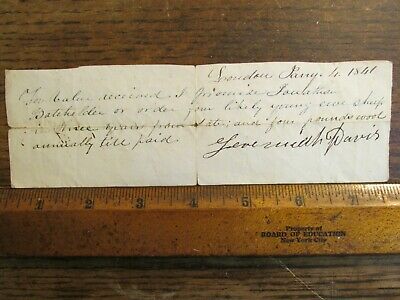 Loudon Jany. 4. 1841
For value received I promise Jonathan
Batchelder or order four likely young ewe sheep
in three years from date; and four pounds wool
annually till paid.
Jeremiah Davis
1 2 3 4 5 6 7 8 9 10 11
Property of
BOARD OF EDUCATION
New York City